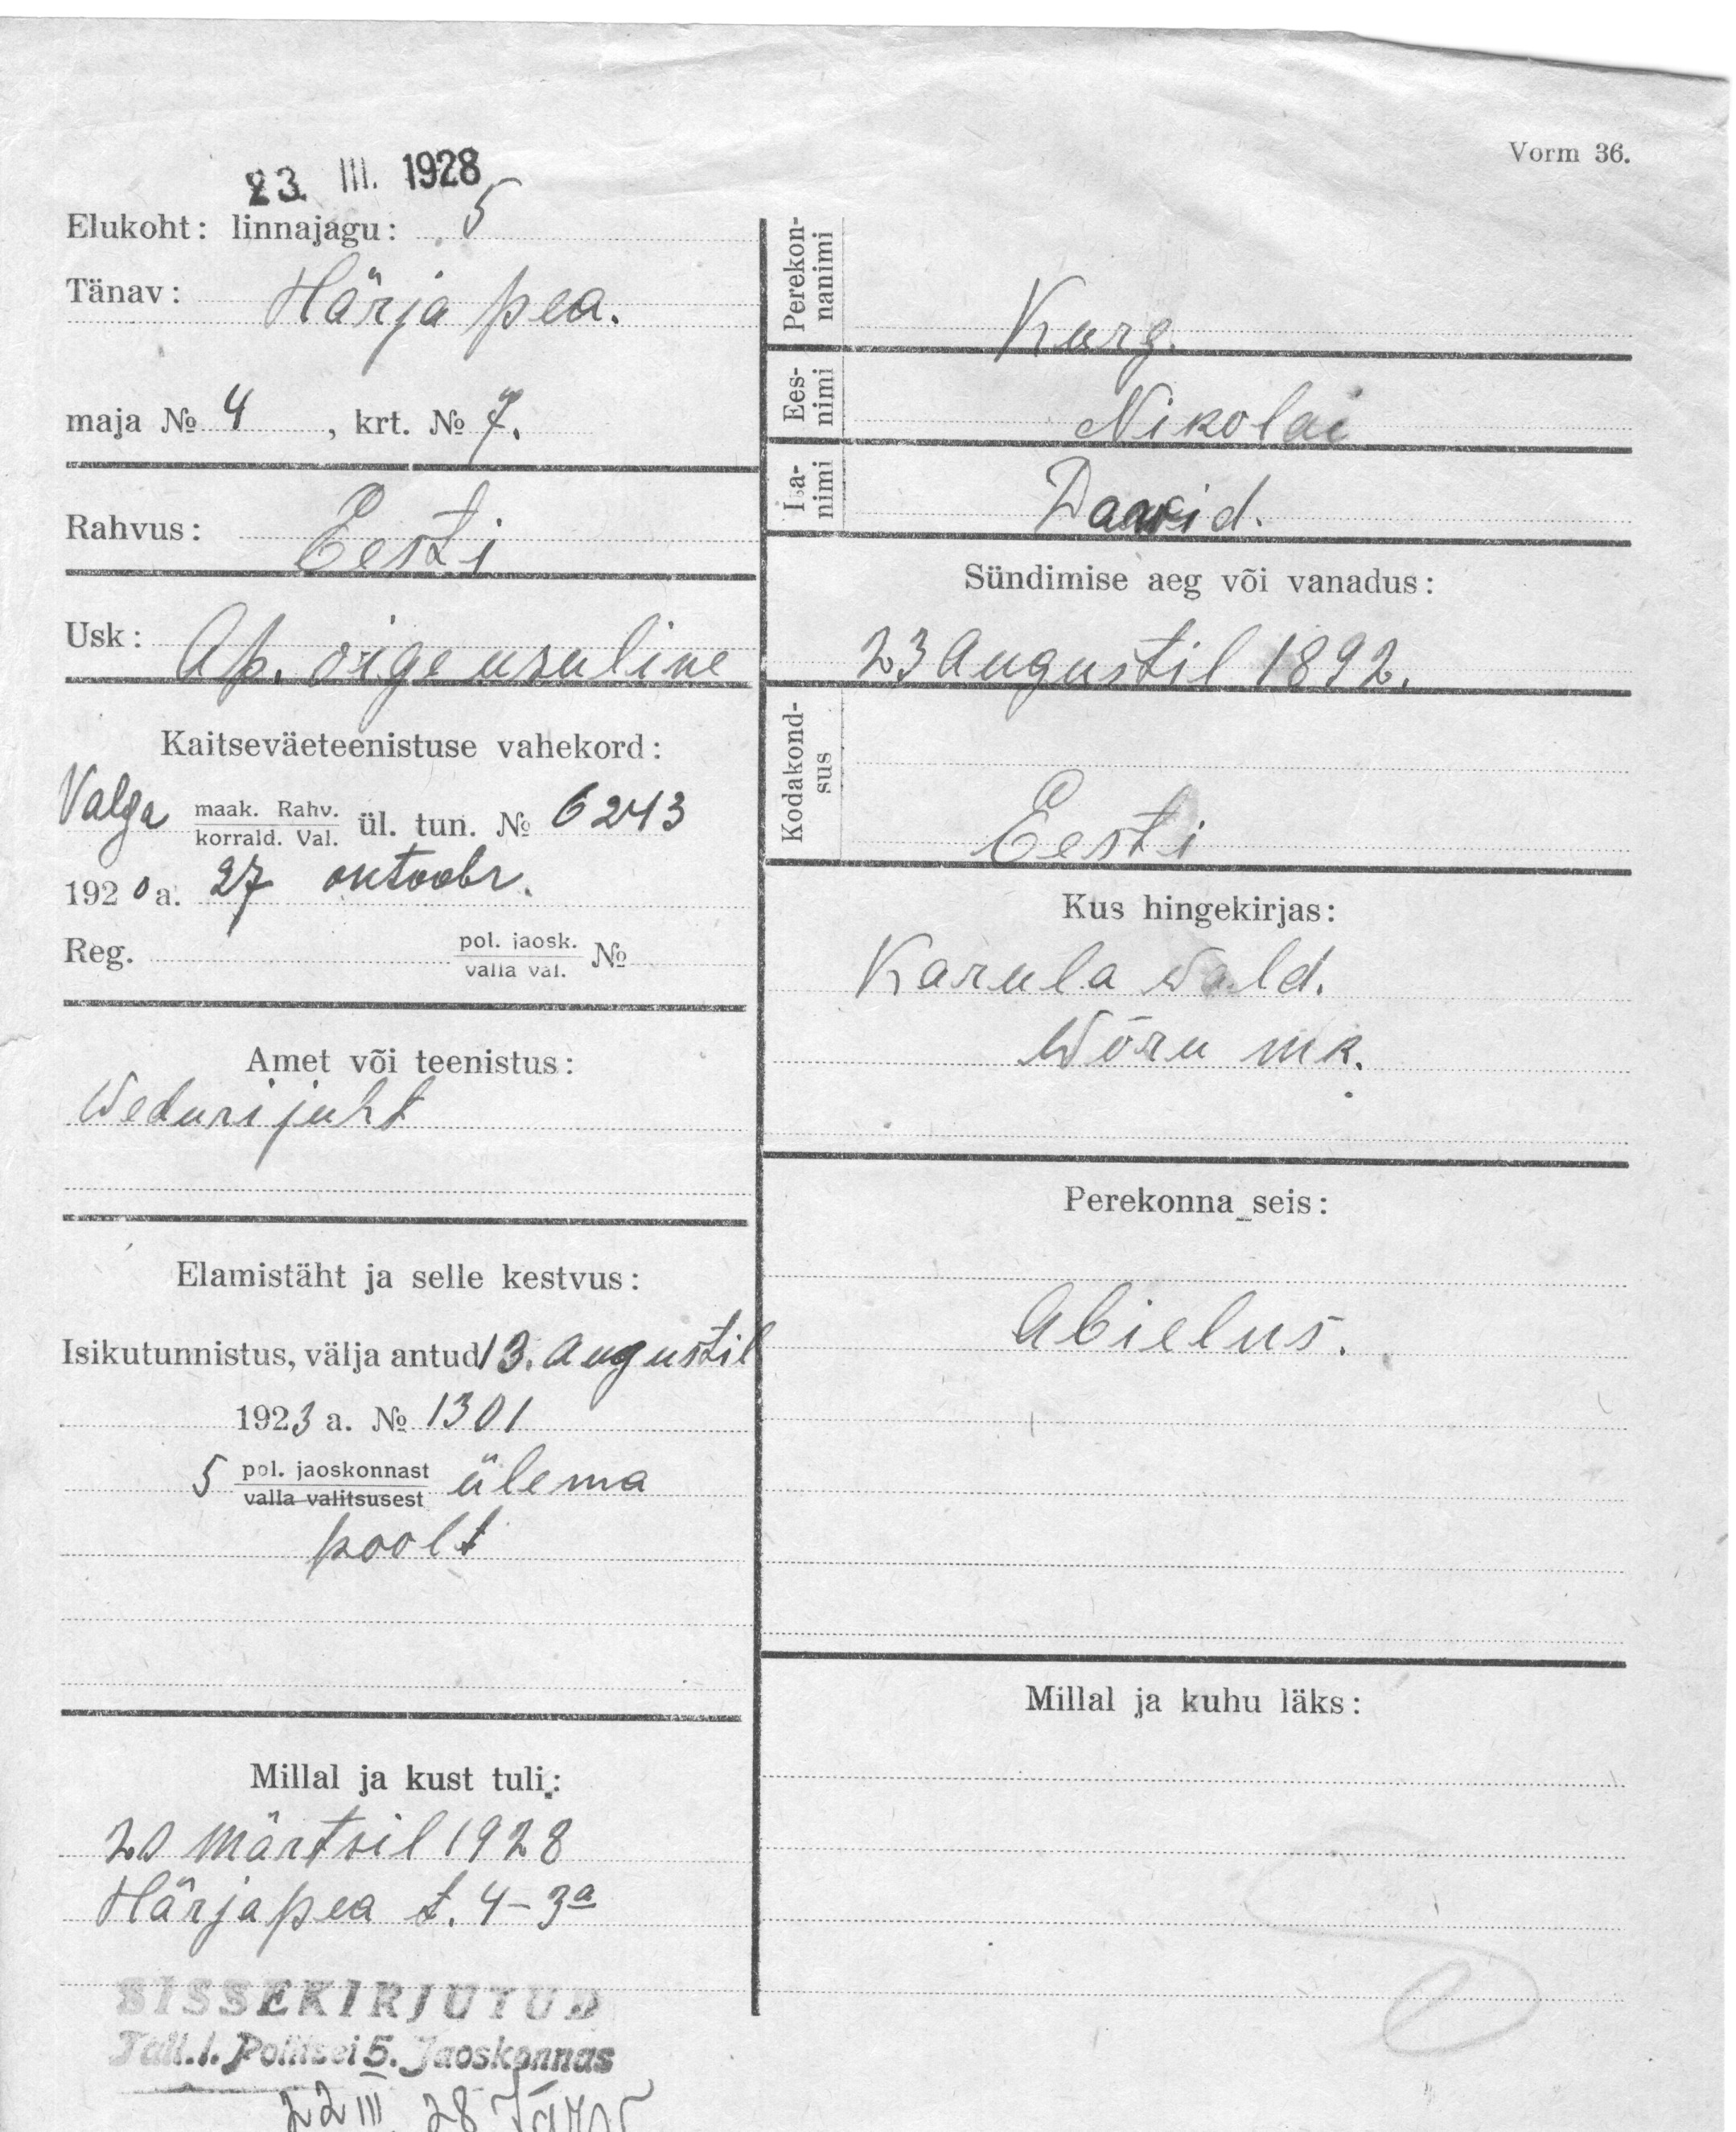 23. III. 1928
Vorm 36.
Elukoht: linnajagu: 5
Tänav: Härja pea.
maja № 4 , krt. № 7.
Rahvus: Eesti
Usk: Ap. õige usuline
Kaitseväeteenistuse vahekord:
Valga maak. Rahv. ül. tun. № 6243
korrald. Val.
1920 a. 27 oktoobr.
Reg. pol. jaosk. №
valla val.
Amet või teenistus:
Wedurijuht
Elamistäht ja selle kestvus:
Isikutunnistus, välja antud 13. augustil
1923 a. № 1301
5 pol. jaoskonnast ülema
valla valitsusest
poolt
Millal ja kust tuli:
20 märtsil 1928
Härjapea t. 4-3a
SISSEKIRJUTUD
Tall. l. Politsei 5. Jaoskonnas
22 III 28
Perekon-
nanimi
Kurg.
Ees-
nimi
Nikolai
Isa-
nimi
Dawid.
Sündimise aeg või vanadus:
23 Augustil 1892.
Kodakond-
sus
Eesti
Kus hingekirjas:
Karula wald.
Wõru mk.
Perekonna seis:
Abielus.
Millal ja kuhu läks: